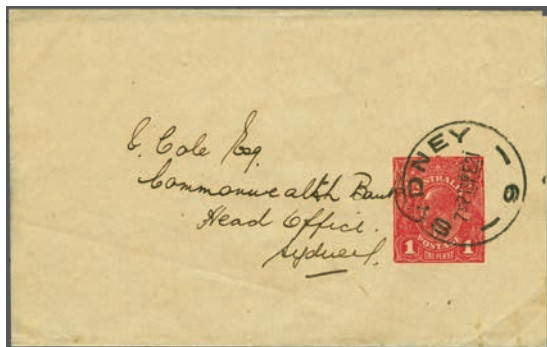 E. Cole Esq.
Commonwealth Bank
Head Office.
Sydney.
SYDNEY
6
AUSTRALIA
1 POSTAGE 1
ONE PENNY